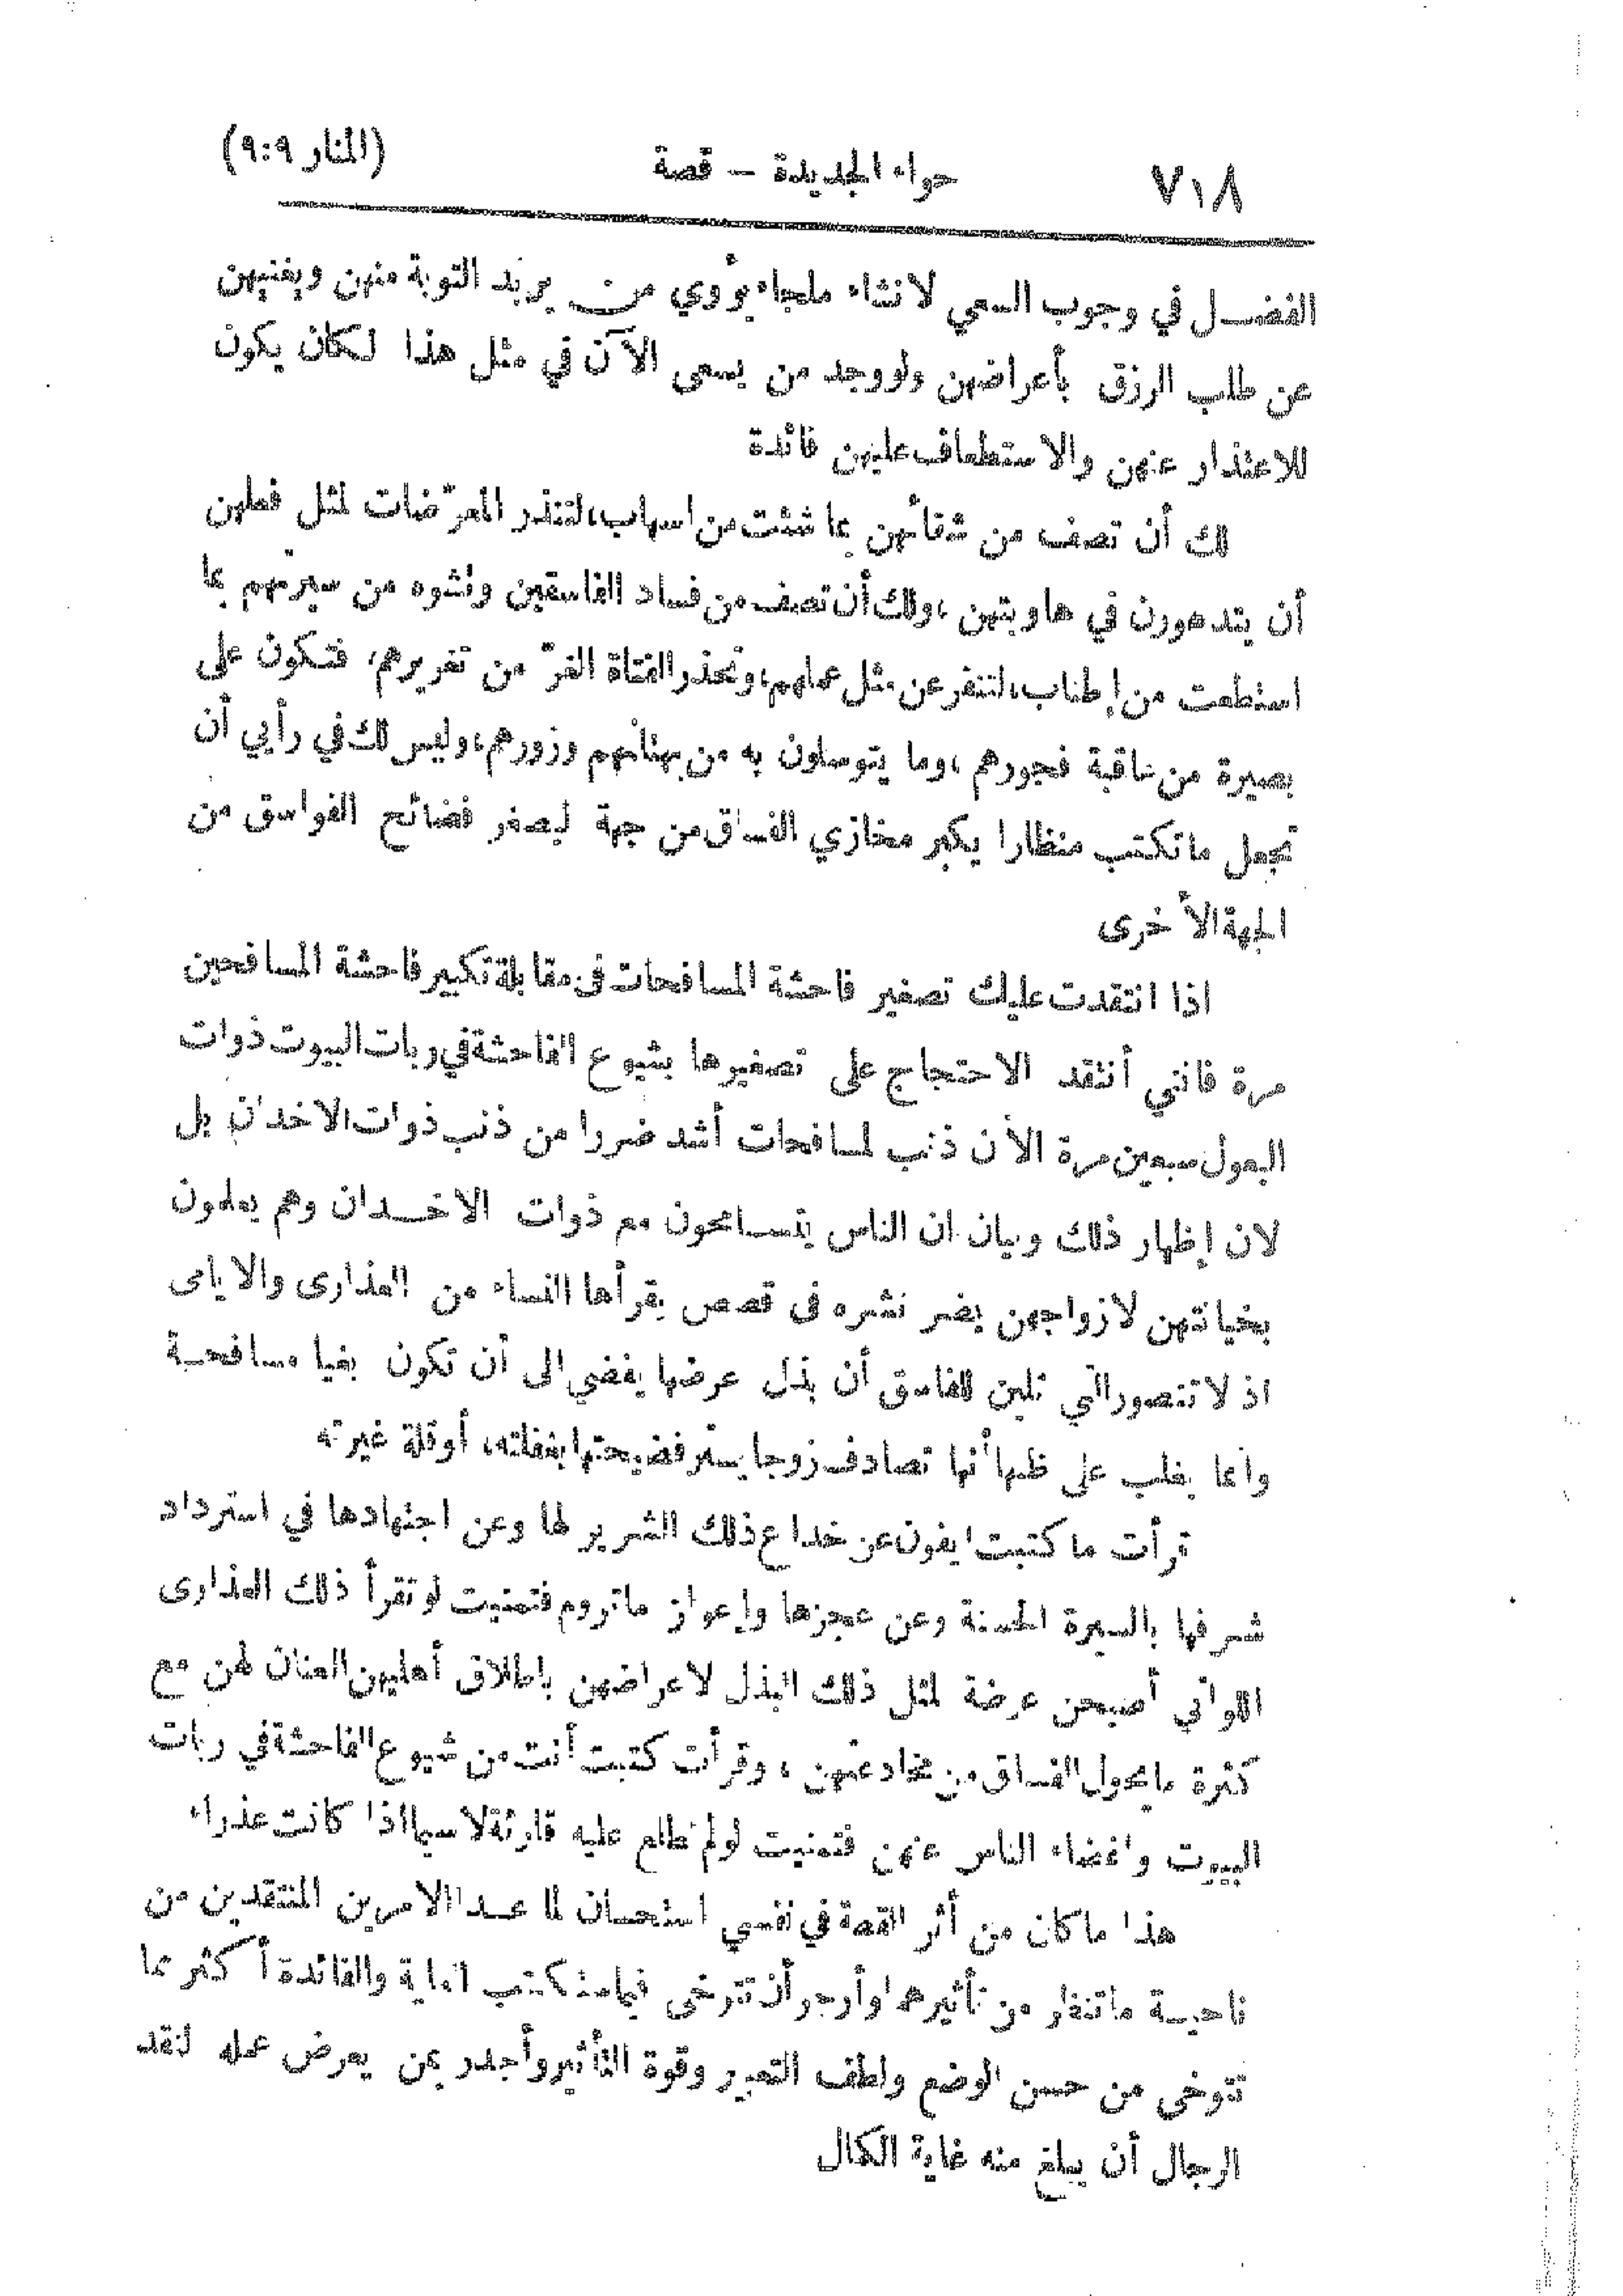 ٧١٨ حواء الجديدة – قصة (المنار ٩:٩)
الفضل في وجوب السعي لانشاء ملجاء يؤوي من يريد التوبة منهن ويغنيهن
عن طلب الرزق بأعراضهن ولو وجد من يسعى الآن في مثل هذا لكان يكون
للاعتذار عنهن والاستعطاف عليهن فائدة
لك أن تصف من شقائهن بما شئت من اسهاب، لتنذر المعرّضات لمثل فعلهن
أن يتدهورن في هاويتهن، ولك أن تصف من فساد الفاسقين وتشوه من سيرتهم بما
استطعت من إطناب، لتنفر عن مثل عملهم، وتحذر الفتاة الغرّ من تغريرهم، فتكون على
بصيرة من عاقبة فجورهم، وما يتوسلون به من بهتانهم وزورهم، وليس لك في رأيي أن
تجعل ما تكتب منظارا يكبر مخازي الفساق من جهة ليصغر فضائح الفواسق من
الجهة الأخرى
اذا انتقدت عليك تصغير فاحشة المسافحات في مقابلة تكبير فاحشة المسافحين
مرة فانني أنتقد الاحتجاج على تصغيرها بشيوع الفاحشة في ربات البيوت ذوات
البعول سبعين مرة الأن ذنب لمسافحات أشد ضررا من ذنب ذوات الاخدان بل
لان إظهار ذلك وبيان ان الناس يتسامحون مع ذوات الاخدان وهم يعلمون
بخيانتهن لازواجهن يضر نشره في قصص يقرأها النساء من العذارى والايامى
اذ لا تتصور التي تلين للفاسق أن بذل عرضها يفضي الى أن تكون بغيا مسافحة
وانما يغلب على ظنها أنها تصادف زوجا يستر فضيحتها بغفلته، أو قلة غيرته
قرأت ما كتبت ايفون عن خداع ذلك الشرير لها وعن اجتهادها في استرداد
شرفها بالسيرة الحسنة وعن عجزها وإعواز ما تروم فتمنيت لو تقرأ ذلك العذارى
اللواتي أصبحن عرضة لمثل ذلك البذل لاعراضهن باطلاق أهليهن العنان لهن مع
كثرة ما يحول الفساق من مخادعتهن، وقرأت كتبت أنت من شيوع الفاحشة في ربات
البيوت واغضاء الناس عنهن فتمنيت لو لم تطلع عليه قارئة لا سيما اذا كانت عذراء
هذا ما كان من أثر القصة في نفسي استحسان لما عدا الامرين المنتقدين من
ناحية ما تنظر من تأثيرها وأرجو أن تتوخى فيما ستكتب الغاية والفائدة أكثر مما
تتوخى من حسن الوضع ولطف التعبير وقوة التأثير وأجدر بمن يعرض عمله لنقد
الرجال أن يبلغ منه غاية الكمال